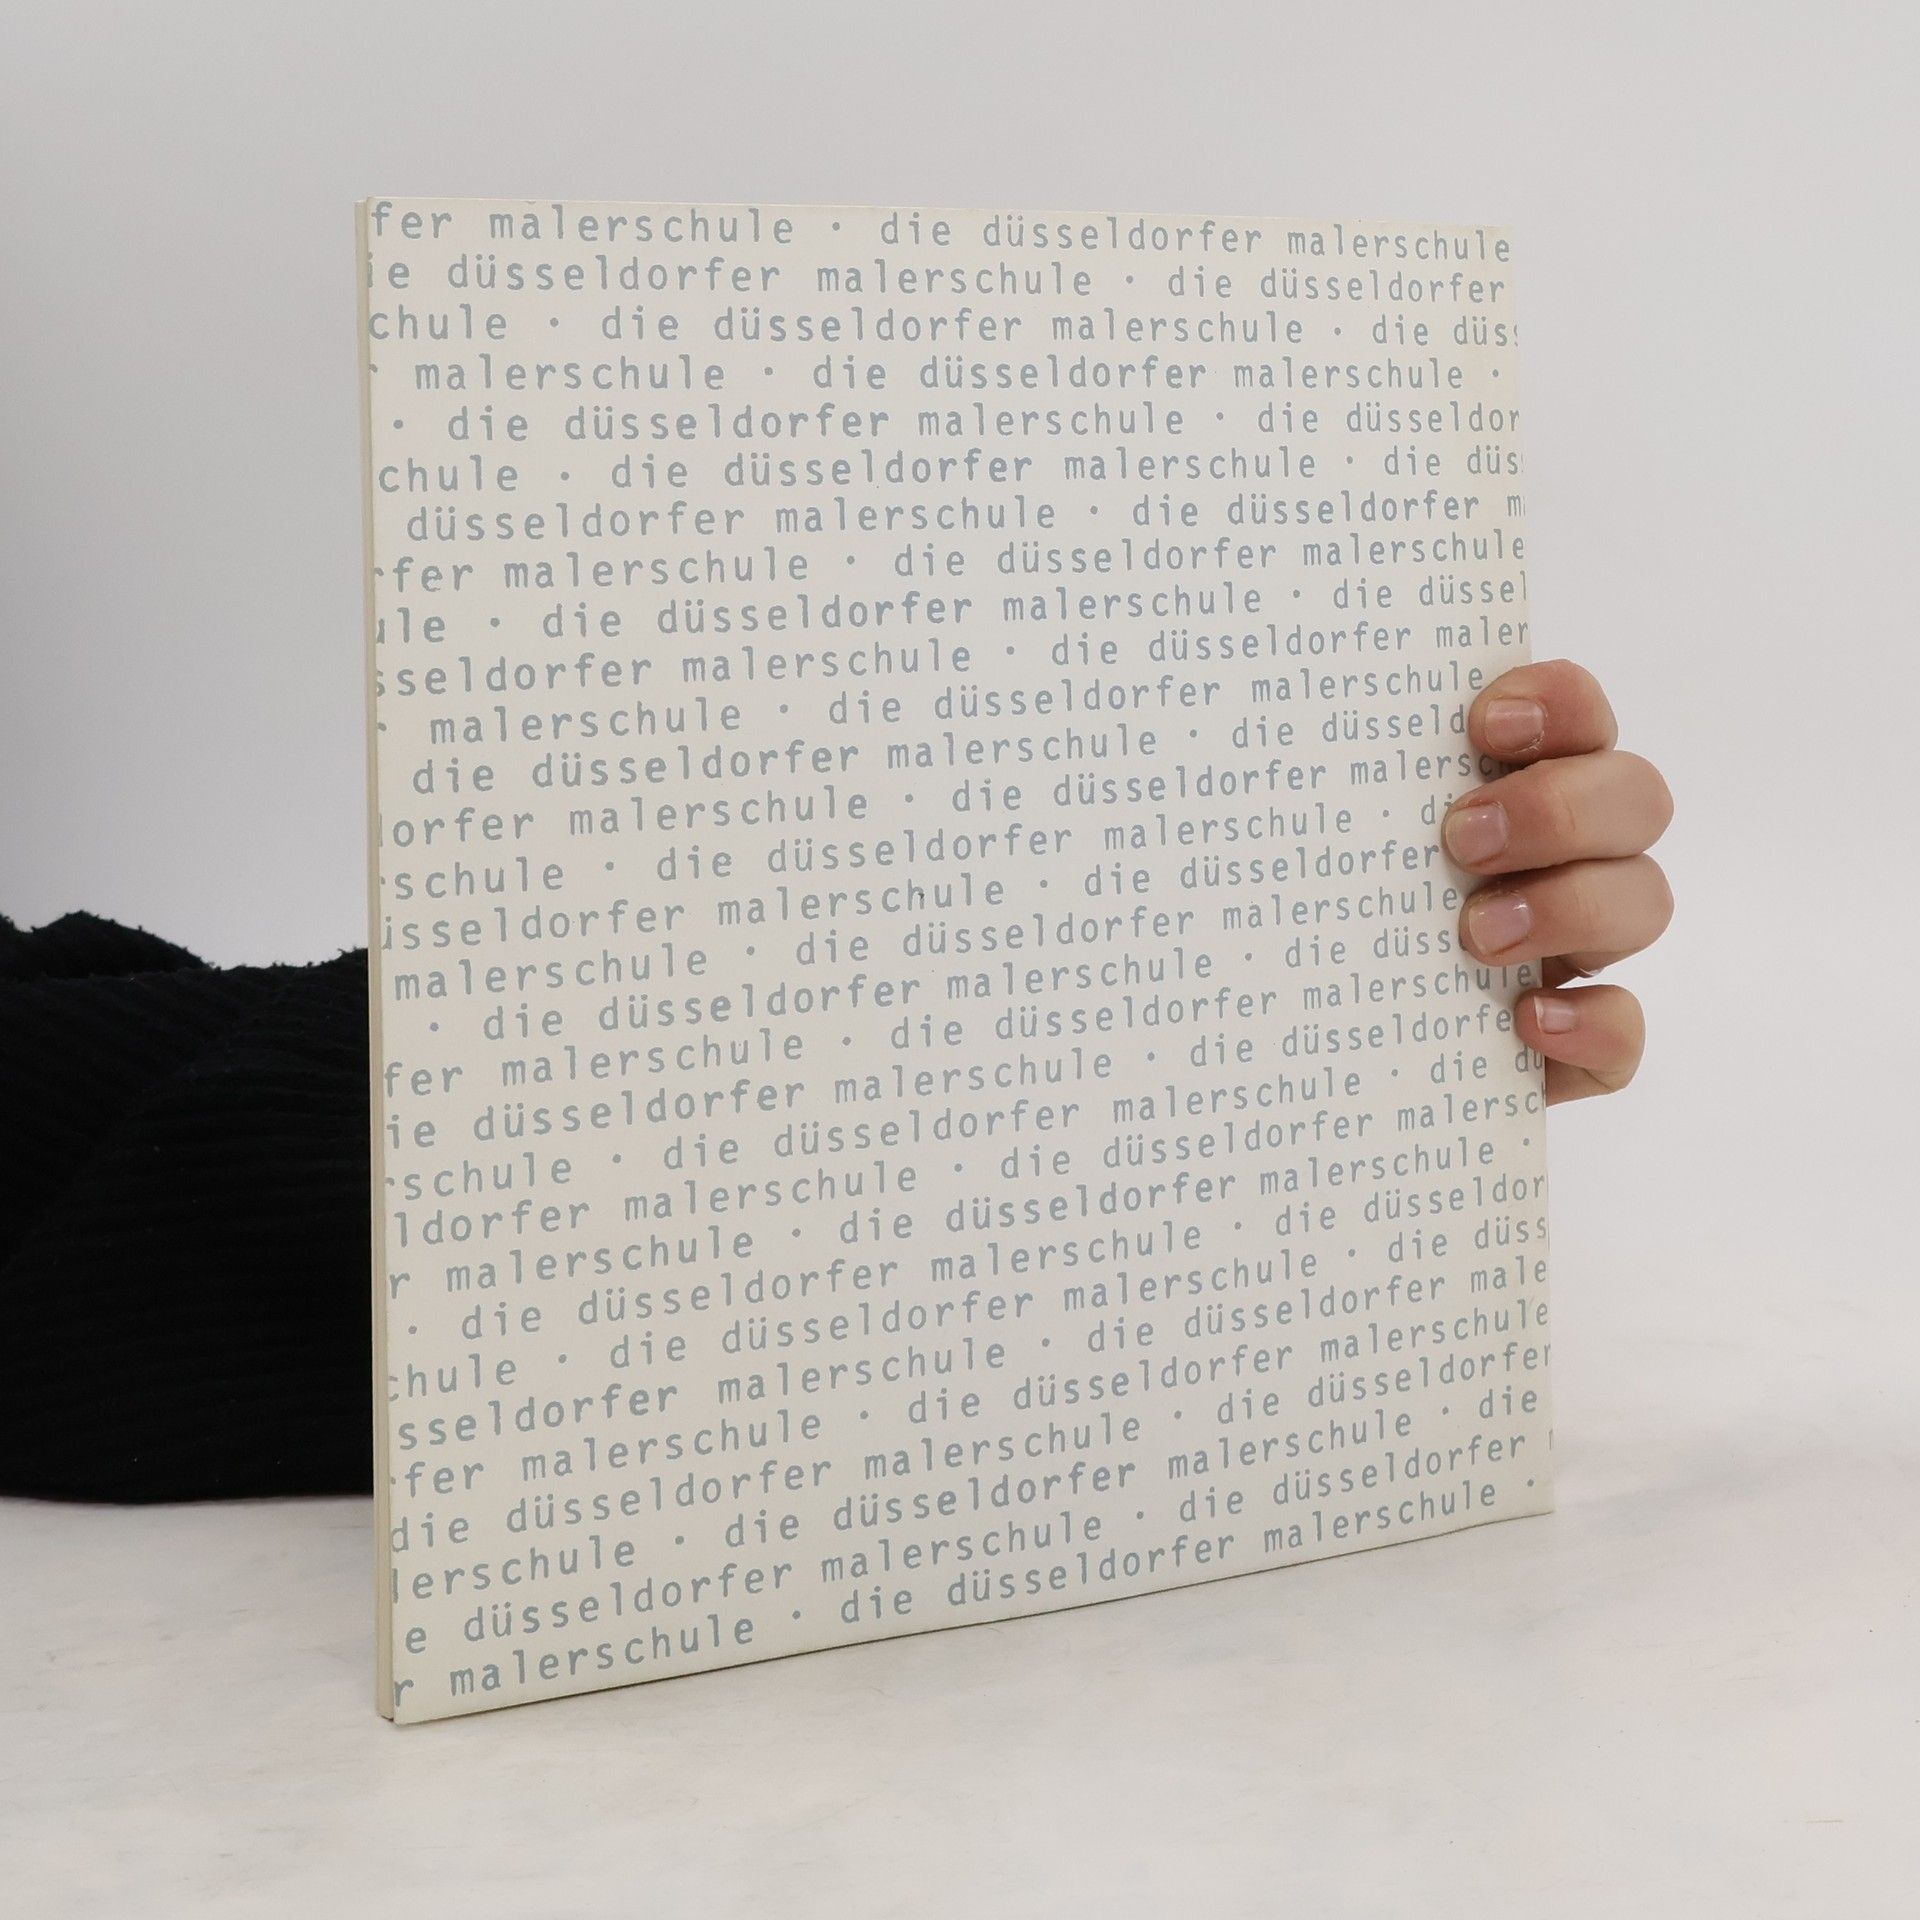 fer malerschule · die düsseldorfer malerschule
ie düsseldorfer malerschule · die düsseldorfer
chule · die düsseldorfer malerschule · die düs
malerschule · die düsseldorfer malerschule ·
· die düsseldorfer malerschule · die düsseldor
chule · die düsseldorfer malerschule · die düs
düsseldorfer malerschule · die düsseldorfer m
fer malerschule · die düsseldorfer malerschule
le · die düsseldorfer malerschule · die düssel
sseldorfer malerschule · die düsseldorfer maler
malerschule · die düsseldorfer malerschule
die düsseldorfer malerschule · die düsseld
orfer malerschule · die düsseldorfer malersc
schule · die düsseldorfer malerschule · di
üsseldorfer malerschule · die düsseldorfer
malerschule · die düsseldorfer malerschule
· die düsseldorfer malerschule · die düss
fer malerschule · die düsseldorfer malerschule
ie düsseldorfer malerschule · die düsseldorfe
schule · die düsseldorfer malerschule · die dü
ldorfer malerschule · die düsseldorfer malersc
r malerschule · die düsseldorfer malerschule ·
· die düsseldorfer malerschule · die düsseldor
chule · die düsseldorfer malerschule · die düss
sseldorfer malerschule · die düsseldorfer male
fer malerschule · die düsseldorfer malerschule
die düsseldorfer malerschule · die düsseldorfer
lerschule · die düsseldorfer malerschule · die
e düsseldorfer malerschule · die düsseldorfer
r malerschule · die düsseldorfer malerschule ·